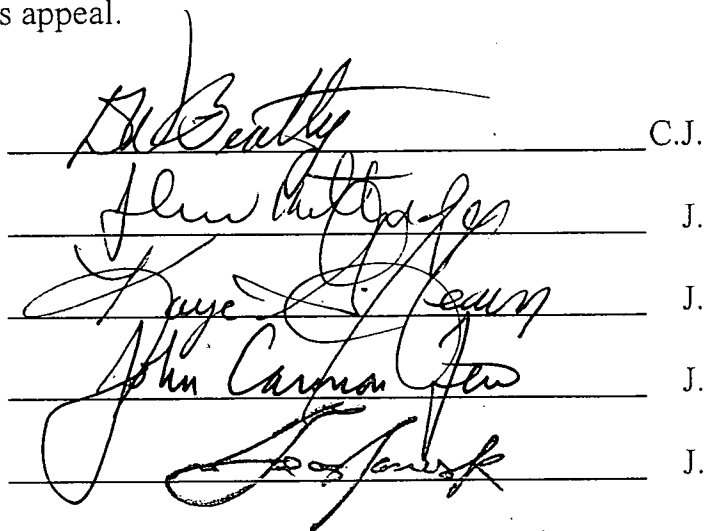 s appeal.
Beatty C.J.
John J.
Kaye Hearn J.
John Cannon Few J.
J.